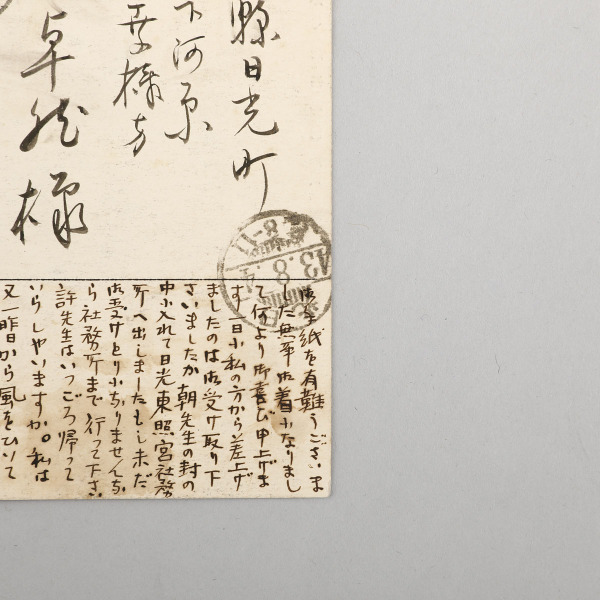 縣日光町
下河原
様方
卓然様
御手紙を有難うございま
した無事御着になりまし
て何より御喜び申上げま
す 日小私の方から差上げ
ましたのは御受け取り下
さいましたか朝先生の封の
中に入れて日光東照宮社務
所へ出しましたもし未だ
御受けとりになりませんな
ら社務所まで行って下さい
許先生はいつごろ帰って
いらしやいますか。私は
又一昨日から風をひいて